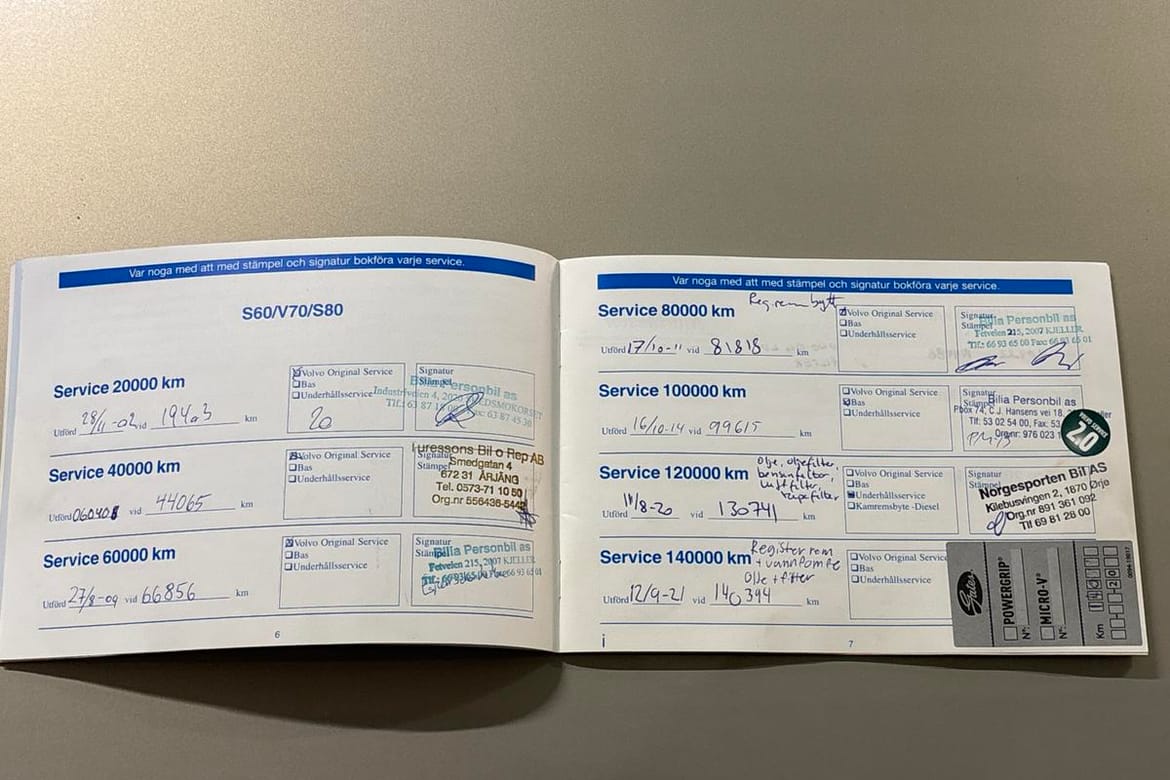 Var noga med att med stämpel och signatur bokföra varje service.
S60/V70/S80
Service 20000 km
Utförd 28/11-02 vid 19403 km
Volvo Original Service
Bas
Underhållsservice
20
Signatur
Stämpel
Bilia Personbil as
Industriveien 4, 2020 SKEDSMOKORSET
Tlf.: 63 87
Fax: 63 87 45 30
Service 40000 km
Utförd 060401 vid 44065 km
Volvo Original Service
Bas
Underhållsservice
Signatur
Stämpel
Turessons Bil o Rep AB
Smedgatan 4
672 31 ÅRJÄNG
Tel. 0573-71 10 50
Org.nr 556436-5442
Service 60000 km
Utförd 27/8-09 vid 66856 km
Volvo Original Service
Bas
Underhållsservice
Signatur
Stämpel
Bilia Personbil as
Fetveien 215, 2007 KJELLER
Tlf.: 66 93 65 00 Fax: 66 93 65 01
6
Var noga med att med stämpel och signatur bokföra varje service.
Service 80000 km
Reg.reim bytt
Utförd 17/10-11 vid 81818 km
Volvo Original Service
Bas
Underhållsservice
Signatur
Stämpel
Bilia Personbil as
Fetveien 215, 2007 KJELLER
Tlf.: 66 93 65 00 Fax: 66 93 65 01
Service 100000 km
Utförd 16/10-14 vid 99615 km
Volvo Original Service
Bas
Underhållsservice
Signatur
Stämpel
Bilia Personbil as
Pbox 74, C.J. Hansens vei 18,
Tlf: 53 02 54 00, Fax: 53
Orgnr: 976 023
VOLVO SERVICE
2.0
Service 120000 km
Olje, oljefilter,
bensinfilter,
luftfilter,
kupefilter
Utförd 11/8-20 vid 130741 km
Volvo Original Service
Bas
Underhållsservice
Kamremsbyte -Diesel
Signatur
Stämpel
Norgesporten Bil AS
Kilebusvingen 2, 1870 Ørje
Org.nr 891 361 092
Tlf 69 81 28 00
Service 140000 km
Register reim
+ vannpompe
Olje + filter
Utförd 12/9-21 vid 140394 km
Volvo Original Service
Bas
Underhållsservice
Gates
POWERGRIP®
N°:
MICRO-V®
N°:
Km
7
i